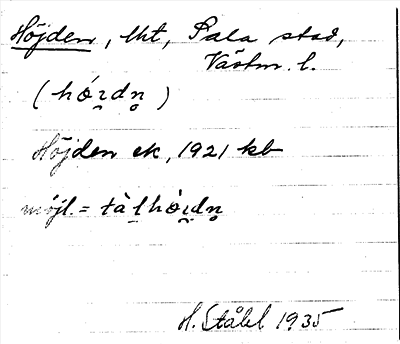 Höjden, lht, Sala stad,
Västm. l.
(hǿi̯dn̥)
Höjden ek, 1921 kb
möjl. = tàlhǿi̯dn̥
H. Ståhl 1935